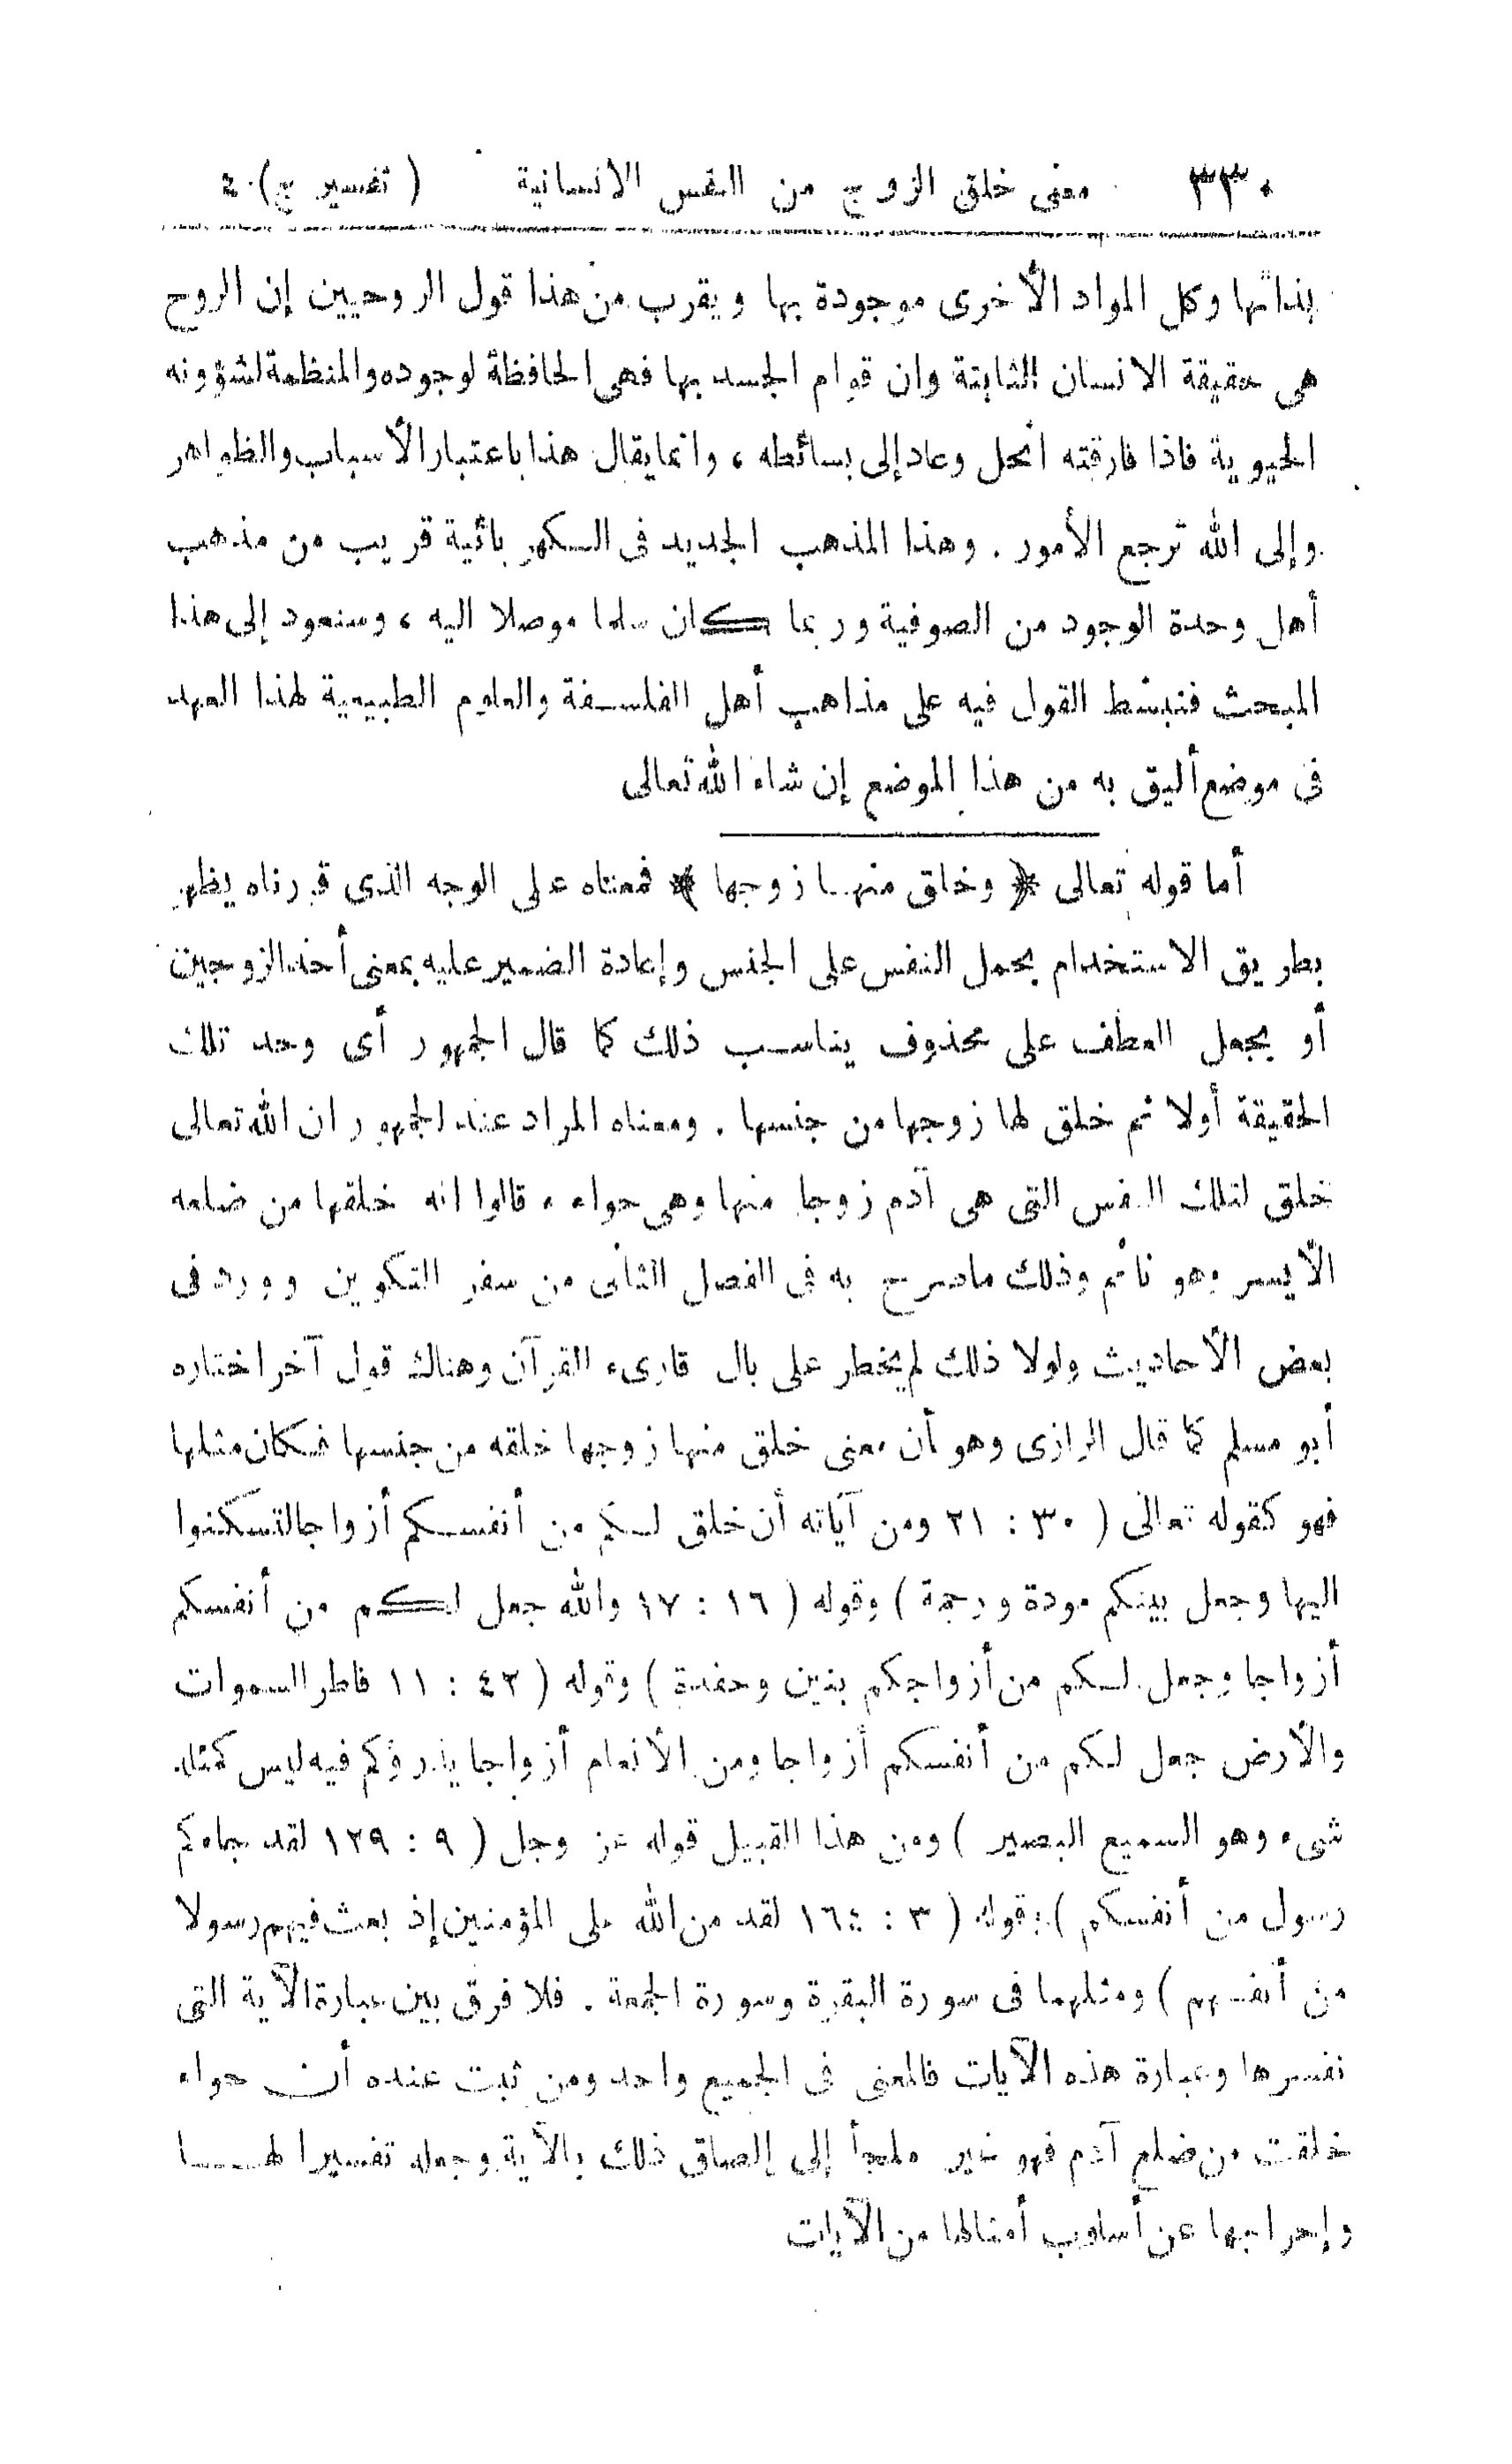 ٣٣٠ معنى خلق الزوج من النفس الانسانية ( تفسير ج ) ٤
بذاتها وكل المواد الأخرى موجودة بها ويقرب من هذا قول الروحيين إن الروح
هى حقيقة الانسان الثابتة وان قوام الجسد بها فهى الحافظة لوجوده والمنظمة لشؤونه
الحيوية فاذا فارقته انحل وعاد إلى بسائطه ، وانما يقال هذا باعتبار الأسباب والظواهر
وإلى الله ترجع الأمور . وهذا المذهب الجديد فى الكهربائية قريب من مذهب
أهل وحدة الوجود من الصوفية وربما كان سلما موصلا اليه ، وسنعود إلى هذا
المبحث فنبسط القول فيه على مذاهب أهل الفلسفة والعلوم الطبيعية لهذا العهد
فى موضع أليق به من هذا الموضع إن شاء الله تعالى
أما قوله تعالى ﴿ وخلق منها زوجها ﴾ فمعناه على الوجه الذى قررناه يظهر
بطريق الاستخدام بحمل النفس على الجنس وإعادة الضمير عليه بمعنى أحد الزوجين
أو بجعل العطف على محذوف يناسب ذلك كما قال الجمهور أى وحد تلك
الحقيقة أولا ثم خلق لها زوجها من جنسها . ومعناه المراد عند الجمهور ان الله تعالى
خلق لتلك النفس التى هى آدم زوجا منها وهى حواء ، قالوا انه خلقها من ضلعه
الأيسر وهو نائم وذلك ما صرح به فى الفصل الثانى من سفر التكوين وورد فى
بعض الأحاديث ولولا ذلك لم يخطر على بال قارىء القرآن وهناك قول آخر اختاره
أبو مسلم كما قال الرازى وهو أن معنى خلق منها زوجها خلقه من جنسها فكان مثلها
فهو كقوله تعالى ( ٣٠ : ٢١ ومن آياته أن خلق لكم من أنفسكم أزواجا لتسكنوا
اليها وجعل بينكم مودة ورحمة ) وقوله ( ١٦ : ١٧ والله جعل لكم من أنفسكم
أزواجا وجعل لكم من أزواجكم بنين وحفدة ) وقوله ( ٤٢ : ١١ فاطر السموات
والأرض جعل لكم من أنفسكم أزواجا ومن الأنعام أزواجا يذرؤكم فيه ليس كمثله
شىء وهو السميع البصير ) ومن هذا القبيل قوله عز وجل ( ٩ : ١٢٩ لقد جاءكم
رسول من أنفسكم ) وقوله ( ٣ : ١٦٤ لقد من الله على المؤمنين إذ بعث فيهم رسولا
من أنفسهم ) ومثلهما فى سورة البقرة وسورة الجمعة . فلا فرق بين عبارة الآية التى
نفسرها وعبارة هذه الآيات فالمعنى فى الجميع واحد ومن ثبت عنده أن حواء
خلقت من ضلع آدم فهو غير ملجأ إلى إلصاق ذلك بالآية وجعله تفسيرا لهـــا
وإخراجها عن أسلوب أمثالها من الآيات